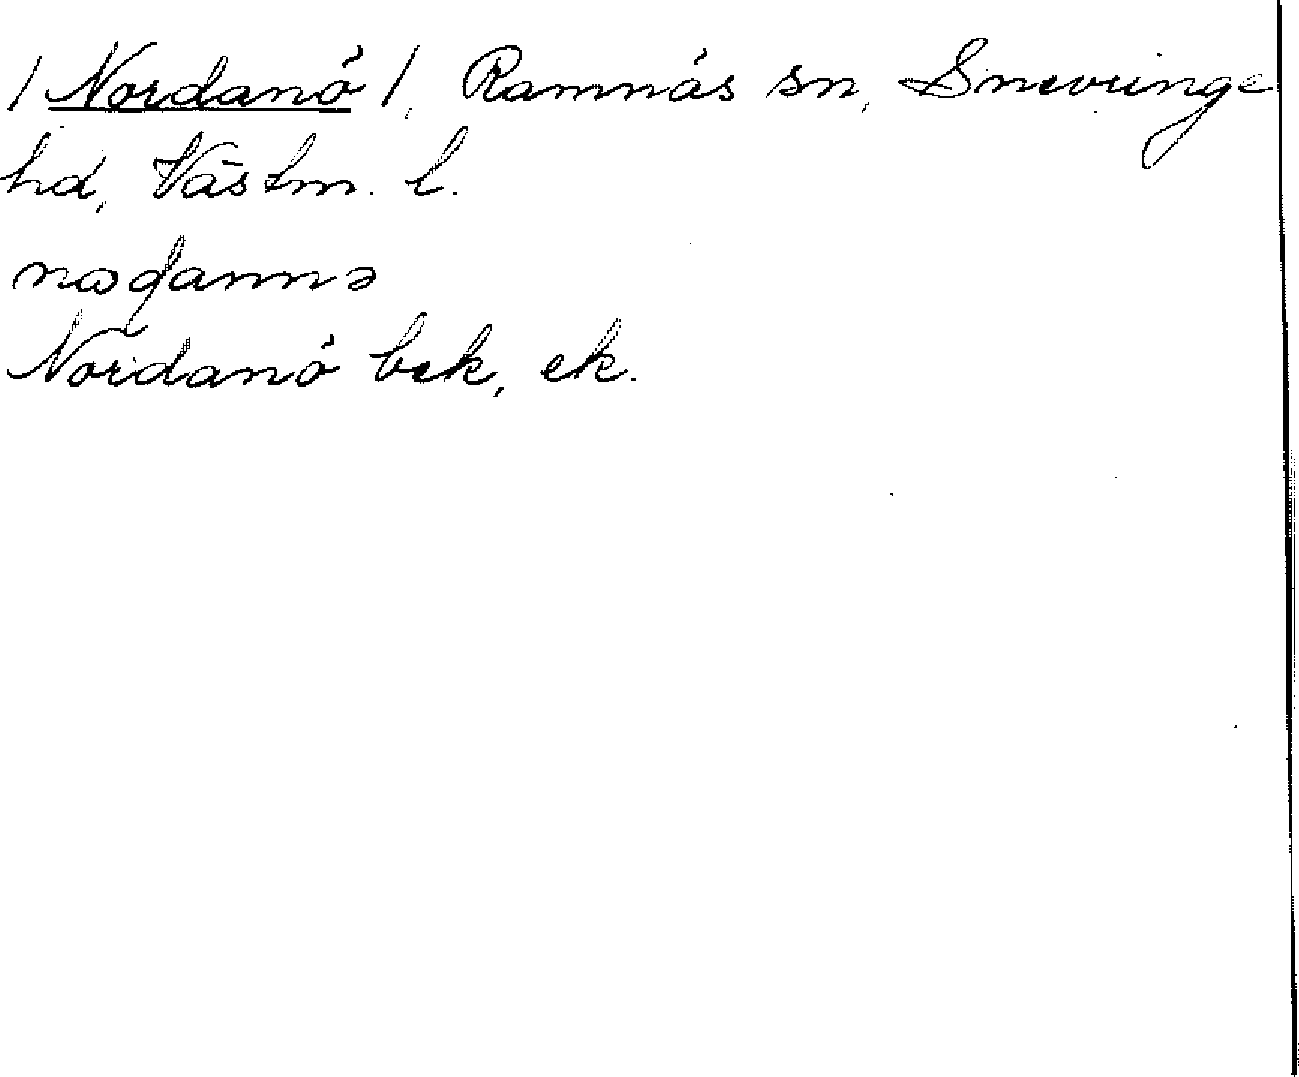 /Nordanö/, Ramnäs sn, Snevringe
hd, Västm. l.
Nordanö bek, ek.